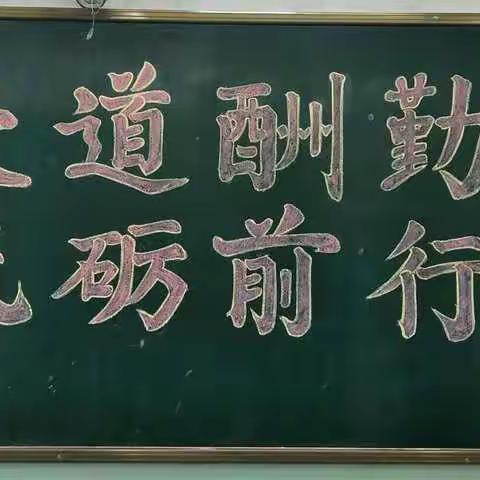 道酬勤
砺前行